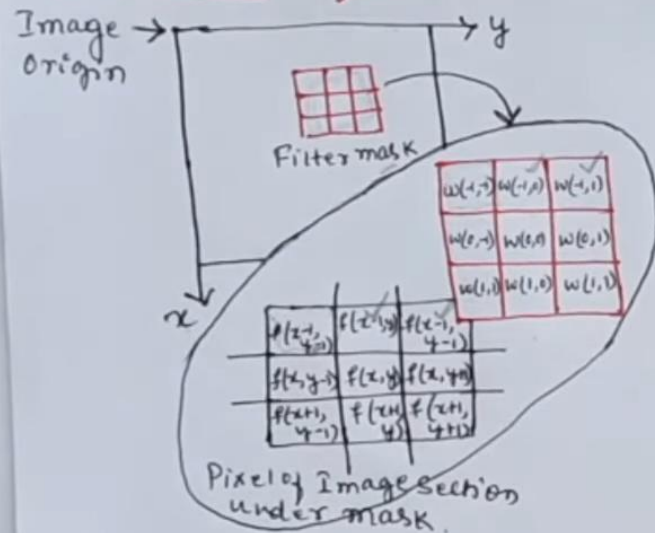 Image
Origin
y
Filter mask
w(-1,-1) w(-1,0) w(-1,1)
w(0,-1) w(0,0) w(0,1)
w(1,1) w(1,0) w(1,1)
x
f(x-1, f(x-1,y) f(x-1,
y-1)
f(x,y-1) f(x,y) f(x,y+1)
f(x+1, f(x+1 f(x+1,
y-1) y) y+1)
Pixel of Image section
under mask